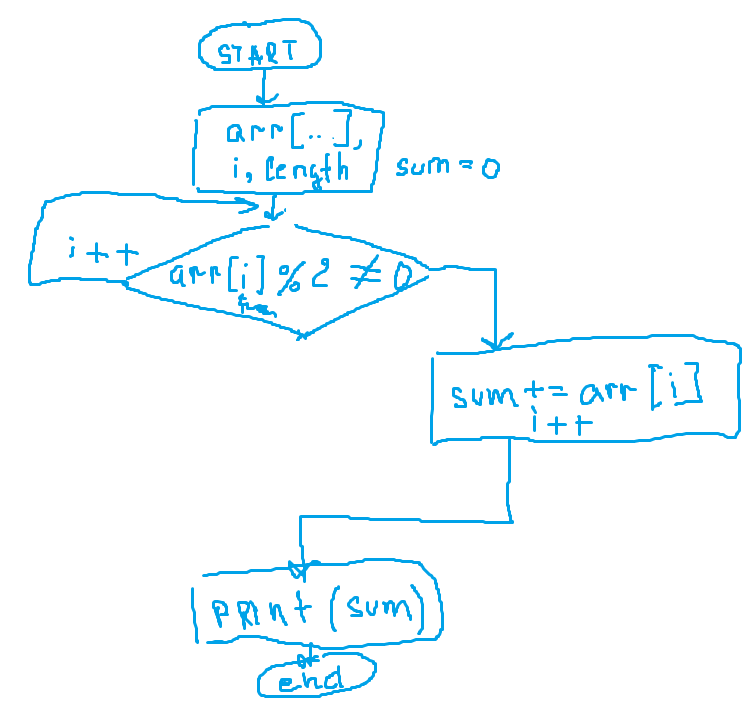 START
arr[...],
i, length
sum = 0
i++
arr[i] % 2 ≠ 0
sum += arr[i]
i++
PRINt (sum)
end